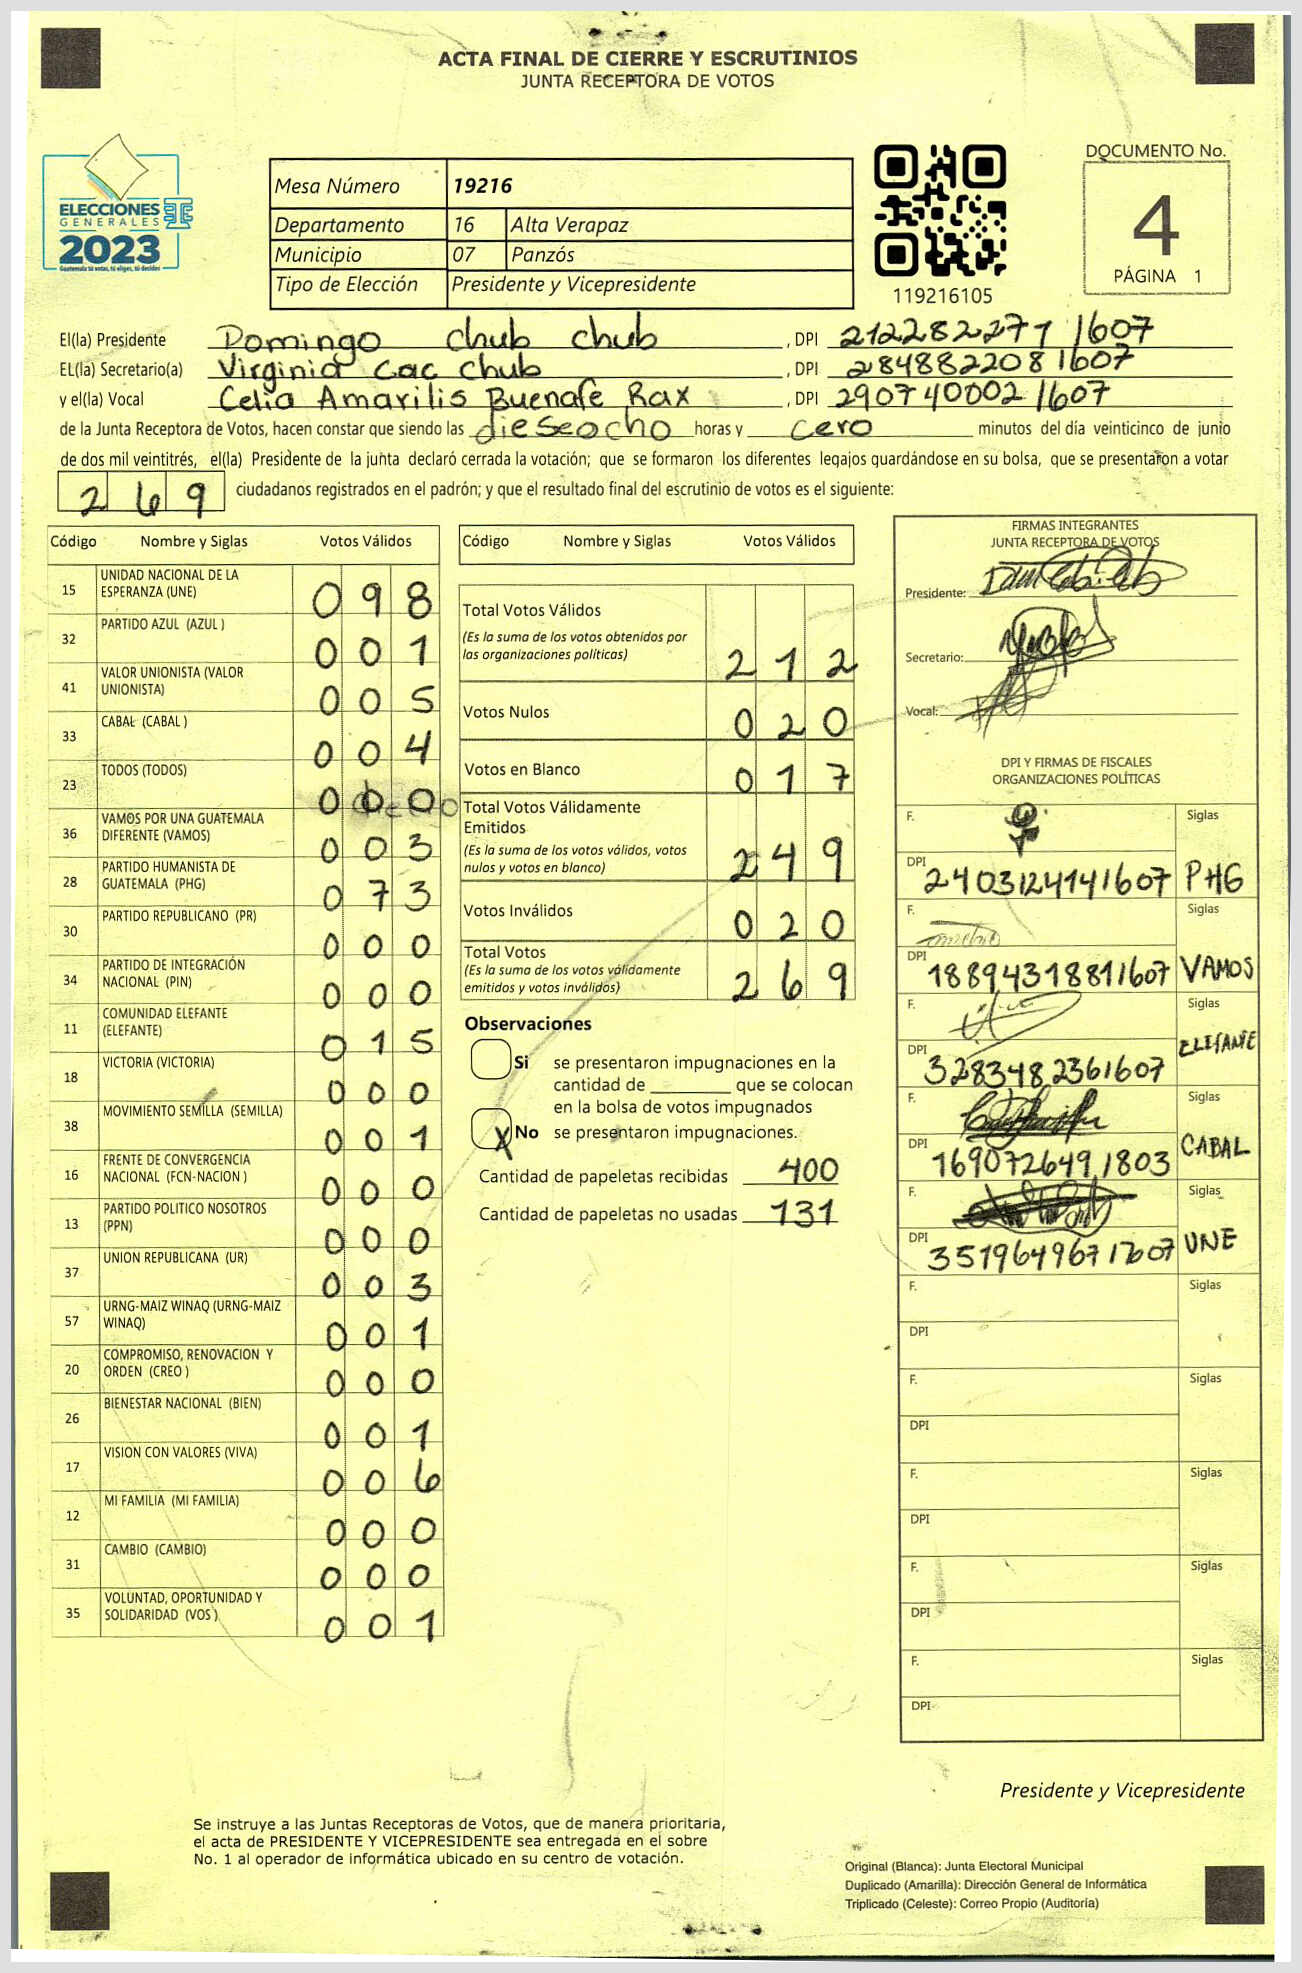 ACTA FINAL DE CIERRE Y ESCRUTINIOS
JUNTA RECEPTORA DE VOTOS
ELECCIONES
GENERALES
2023
Guatemala tú votas, tú eliges, tú decides
Mesa Número 19216
Departamento 16 Alta Verapaz
Municipio 07 Panzós
Tipo de Elección Presidente y Vicepresidente
119216105
DOCUMENTO No.
4
PÁGINA 1
El(la) Presidente Domingo chub chub, DPI 212282271 1607
EL(la) Secretario(a) Virginia Cac chub, DPI 284882208 1607
y el(la) Vocal Celia Amarilis Buenafe Rax, DPI 290740002 1607
de la Junta Receptora de Votos, hacen constar que siendo las dieseocho horas y cero minutos del día veinticinco de junio
de dos mil veintitrés, el(la) Presidente de la junta declaró cerrada la votación; que se formaron los diferentes legajos guardándose en su bolsa, que se presentaron a votar
269 ciudadanos registrados en el padrón; y que el resultado final del escrutinio de votos es el siguiente:
Código Nombre y Siglas Votos Válidos
15 UNIDAD NACIONAL DE LA
ESPERANZA (UNE) 098
32 PARTIDO AZUL (AZUL ) 001
41 VALOR UNIONISTA (VALOR
UNIONISTA) 005
33 CABAL (CABAL ) 004
23 TODOS (TODOS) 000
36 VAMOS POR UNA GUATEMALA
DIFERENTE (VAMOS) 003
28 PARTIDO HUMANISTA DE
GUATEMALA (PHG) 073
30 PARTIDO REPUBLICANO (PR) 000
34 PARTIDO DE INTEGRACIÓN
NACIONAL (PIN) 000
11 COMUNIDAD ELEFANTE
(ELEFANTE) 015
18 VICTORIA (VICTORIA) 000
38 MOVIMIENTO SEMILLA (SEMILLA) 001
16 FRENTE DE CONVERGENCIA
NACIONAL (FCN-NACION ) 000
13 PARTIDO POLITICO NOSOTROS
(PPN) 000
37 UNION REPUBLICANA (UR) 003
57 URNG-MAIZ WINAQ (URNG-MAIZ
WINAQ) 001
20 COMPROMISO, RENOVACION Y
ORDEN (CREO ) 000
26 BIENESTAR NACIONAL (BIEN) 001
17 VISION CON VALORES (VIVA) 006
12 MI FAMILIA (MI FAMILIA) 000
31 CAMBIO (CAMBIO) 000
35 VOLUNTAD, OPORTUNIDAD Y
SOLIDARIDAD (VOS ) 001
Código Nombre y Siglas Votos Válidos
Total Votos Válidos
(Es la suma de los votos obtenidos por
las organizaciones políticas) 212
Votos Nulos 020
Votos en Blanco 017
Total Votos Válidamente
Emitidos
(Es la suma de los votos válidos, votos
nulos y votos en blanco) 249
Votos Inválidos 020
Total Votos
(Es la suma de los votos válidamente
emitidos y votos inválidos) 269
Observaciones
Si se presentaron impugnaciones en la
cantidad de ________ que se colocan
en la bolsa de votos impugnados
X No se presentaron impugnaciones.
Cantidad de papeletas recibidas 400
Cantidad de papeletas no usadas 131
FIRMAS INTEGRANTES
JUNTA RECEPTORA DE VOTOS
Presidente:
Secretario:
Vocal:
DPI Y FIRMAS DE FISCALES
ORGANIZACIONES POLÍTICAS
F. Siglas
DPI 2403124141607 PHG
F. Siglas
DPI 18894318811607 VAMOS
F. Siglas
DPI 3283482361607 ELEFANTE
F. Siglas
DPI 169072649 1803 CABAL
F. Siglas
DPI 351964967 1607 UNE
F. Siglas
DPI
F. Siglas
DPI
F. Siglas
DPI
F. Siglas
DPI
F. Siglas
DPI
Presidente y Vicepresidente
Se instruye a las Juntas Receptoras de Votos, que de manera prioritaria,
el acta de PRESIDENTE Y VICEPRESIDENTE sea entregada en el sobre
No. 1 al operador de informática ubicado en su centro de votación.
Original (Blanca): Junta Electoral Municipal
Duplicado (Amarilla): Dirección General de Informática
Triplicado (Celeste): Correo Propio (Auditoría)